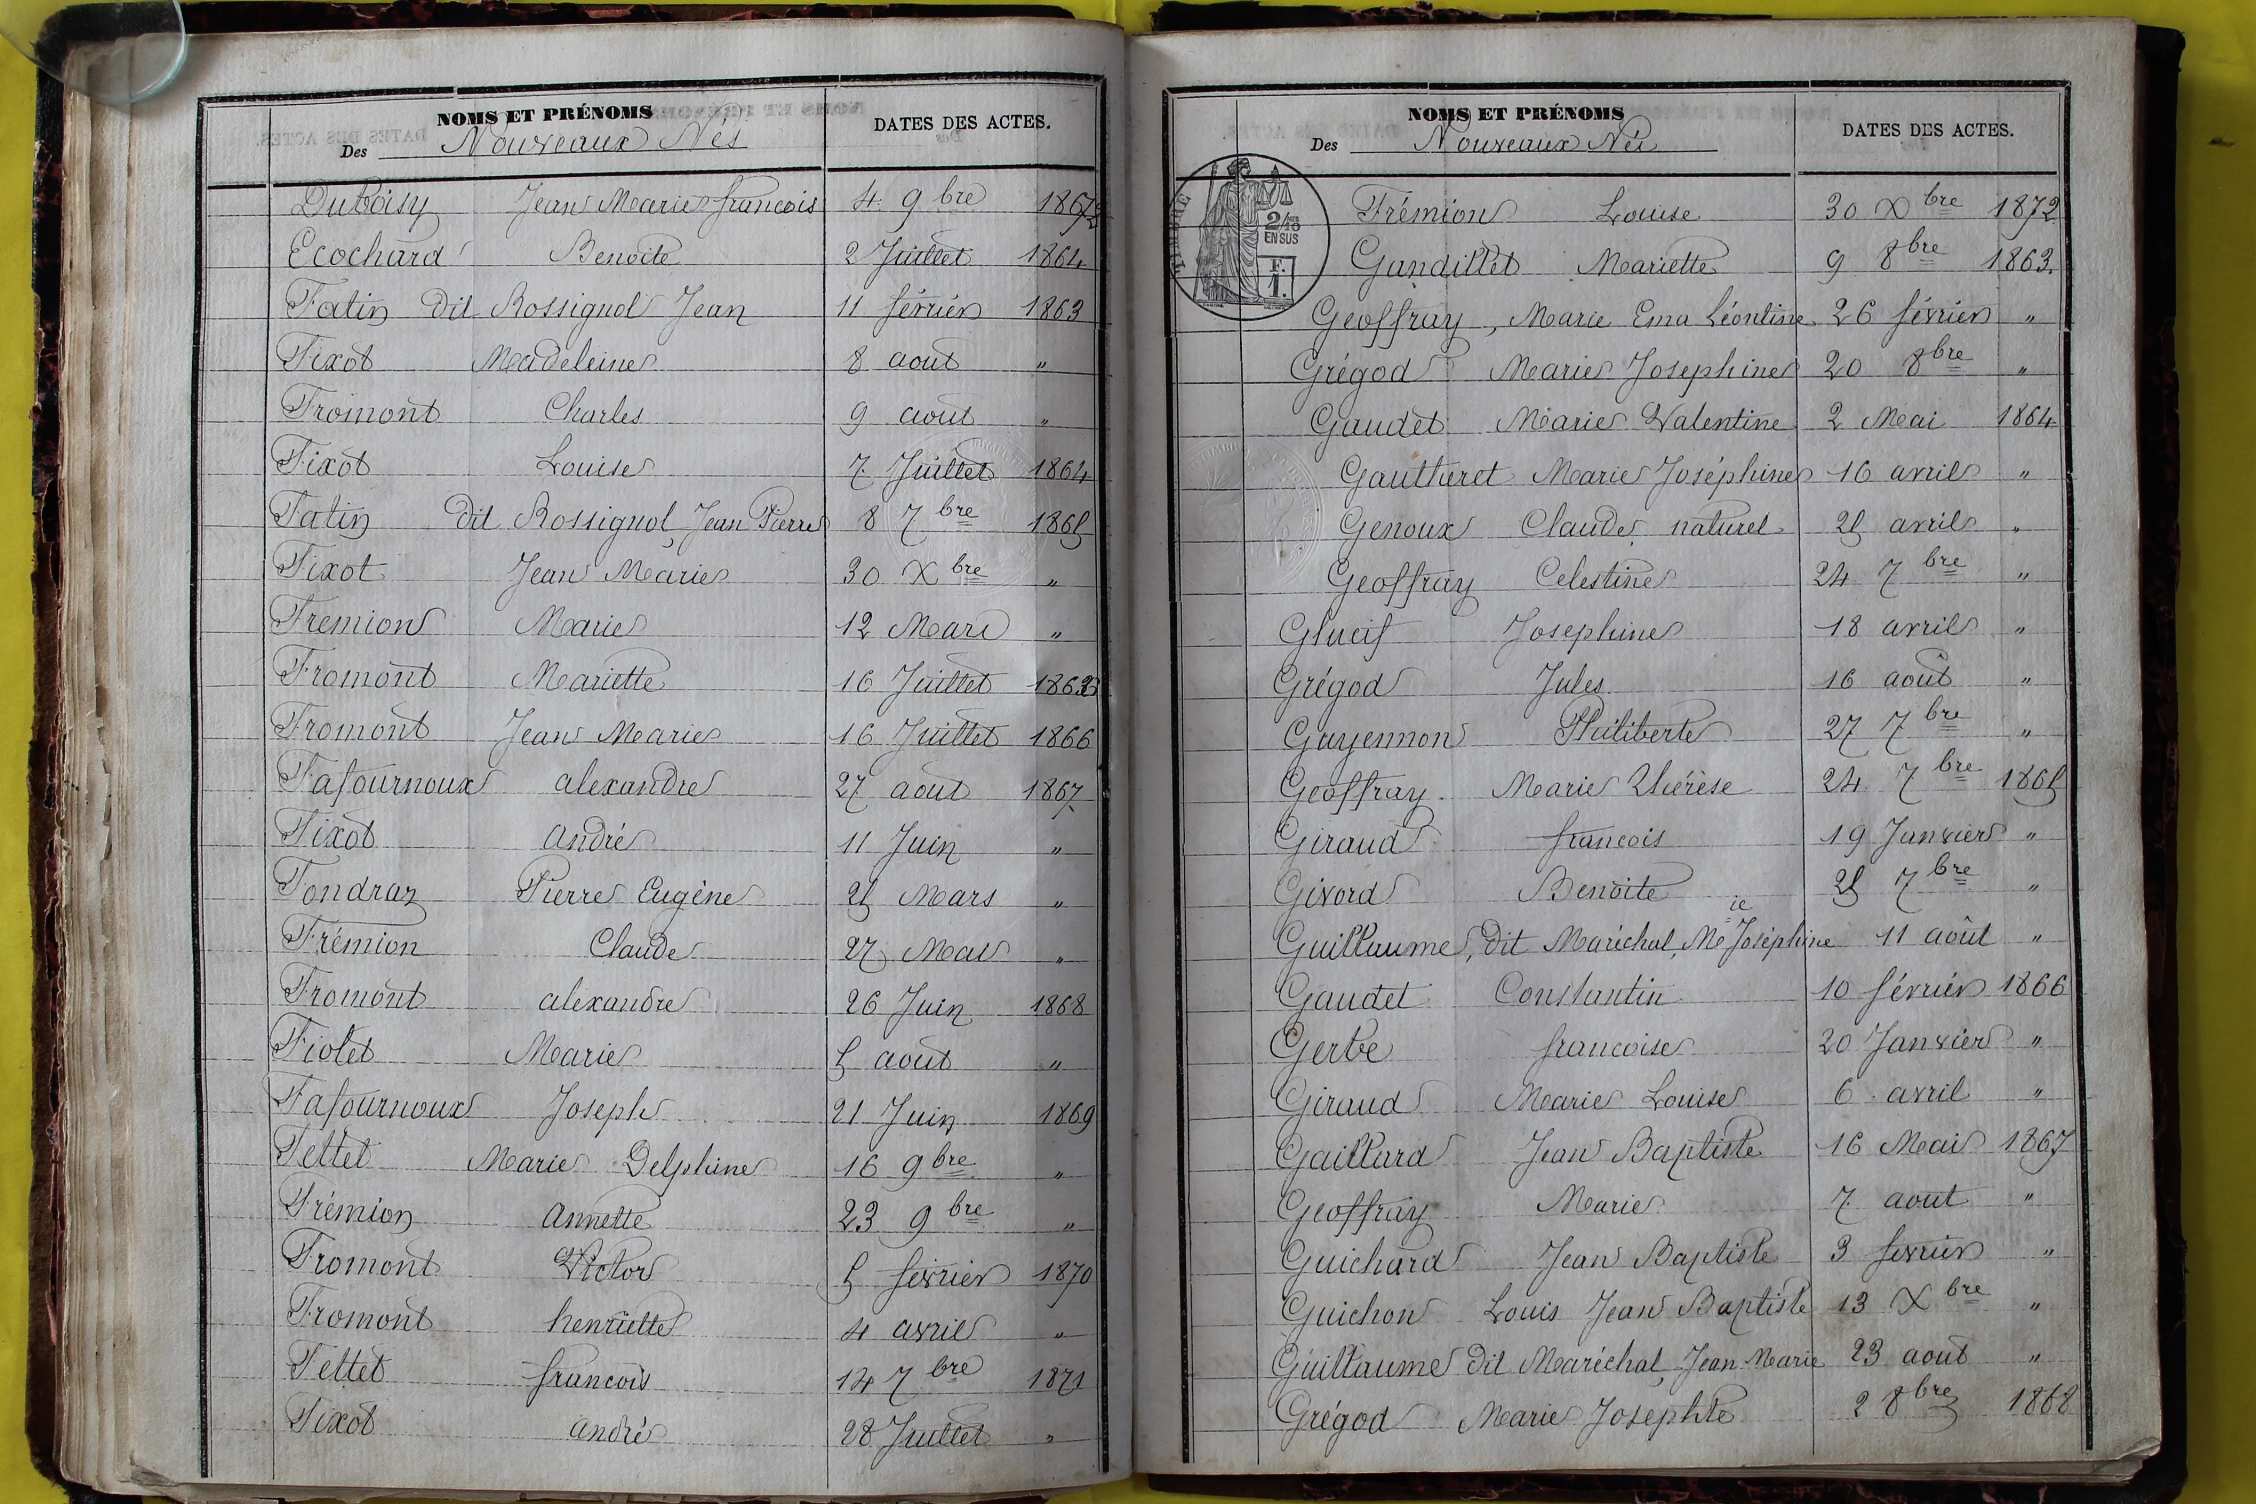 NOMS ET PRÉNOMS
DATES DES ACTES.
Des Nouveaux Nés
Duboisy Jean Marie francois 4 9bre 1872
Ecochard Benoite 2 Juillet 1864
Fatin dit Rossignol Jean 11 février 1863
Fixot Madeleine 8 aout "
Fromont Charles 9 aout "
Fixot Louise 7 Juillet 1864
Fatin dit Rossignol, Jean Pierre 8 7bre 1865
Fixot Jean Marie 30 Xbre "
Fremion Marie 12 Mars "
Fromont Mariette 16 Juillet
Fromont Jean Marie 16 Juillet 1866
Fafournoux alexandre 27 aout 1867
Fixot andré 11 Juin "
Fondraz Pierre Eugène 25 Mars "
Frémion Claude 27 "
Fromont alexandre 26 Juin 1868
Fiolet Marie 5 aout "
Fafournoux Joseph 21 Juin 1869
Fettet Marie Delphine 16 9bre "
Frémion annette 23 9bre "
Fromont Victor 5 fevrier 1870
Fromont henriette 4 avril "
Fettet francois 14 7bre 1871
Fixot andré 28 Juillet "
NOMS ET PRÉNOMS
DATES DES ACTES.
Des Nouveaux Nés
TIMBRE
2/10
EN SUS
F.
1.
Frémion Louise 30 Xbre 1872
Gandillet Mariette 9 8bre 1863.
Geoffray, Marie Ema Léontine 26 février "
Grégod Marie Josephine 20 8bre "
Gaudet Marie Valentine 2 Mai 1864
Gautheret Marie Joséphine 16 avril "
Genoux Claude, naturel 25 avril "
Geoffray Celestine 24 7bre "
Josephine 18 avril "
Grégod Jules 16 août "
Guyennon Philiberte 27 7bre "
Geoffray Marie Thérèse 24 7bre 1865
Giraud francois 19 Janvier "
Givord Benoite 25 7bre "
Guillaume, dit Maréchal, Mie Joséphine 11 août "
Gaudet Constantin 10 février 1866
Gerbe francoise 20 Janvier "
Giraud Marie Louise 6 avril "
Gaillard Jean Baptiste 16 Mai 1867
Geoffray Marie 7 aout "
Guichard Jean Baptiste 3 fevrier "
Guichon Louis Jean Baptiste 13 Xbre "
Guillaume dit Maréchal, Jean Marie 23 aout "
Grégod Marie Josephte 2 8bre 1868